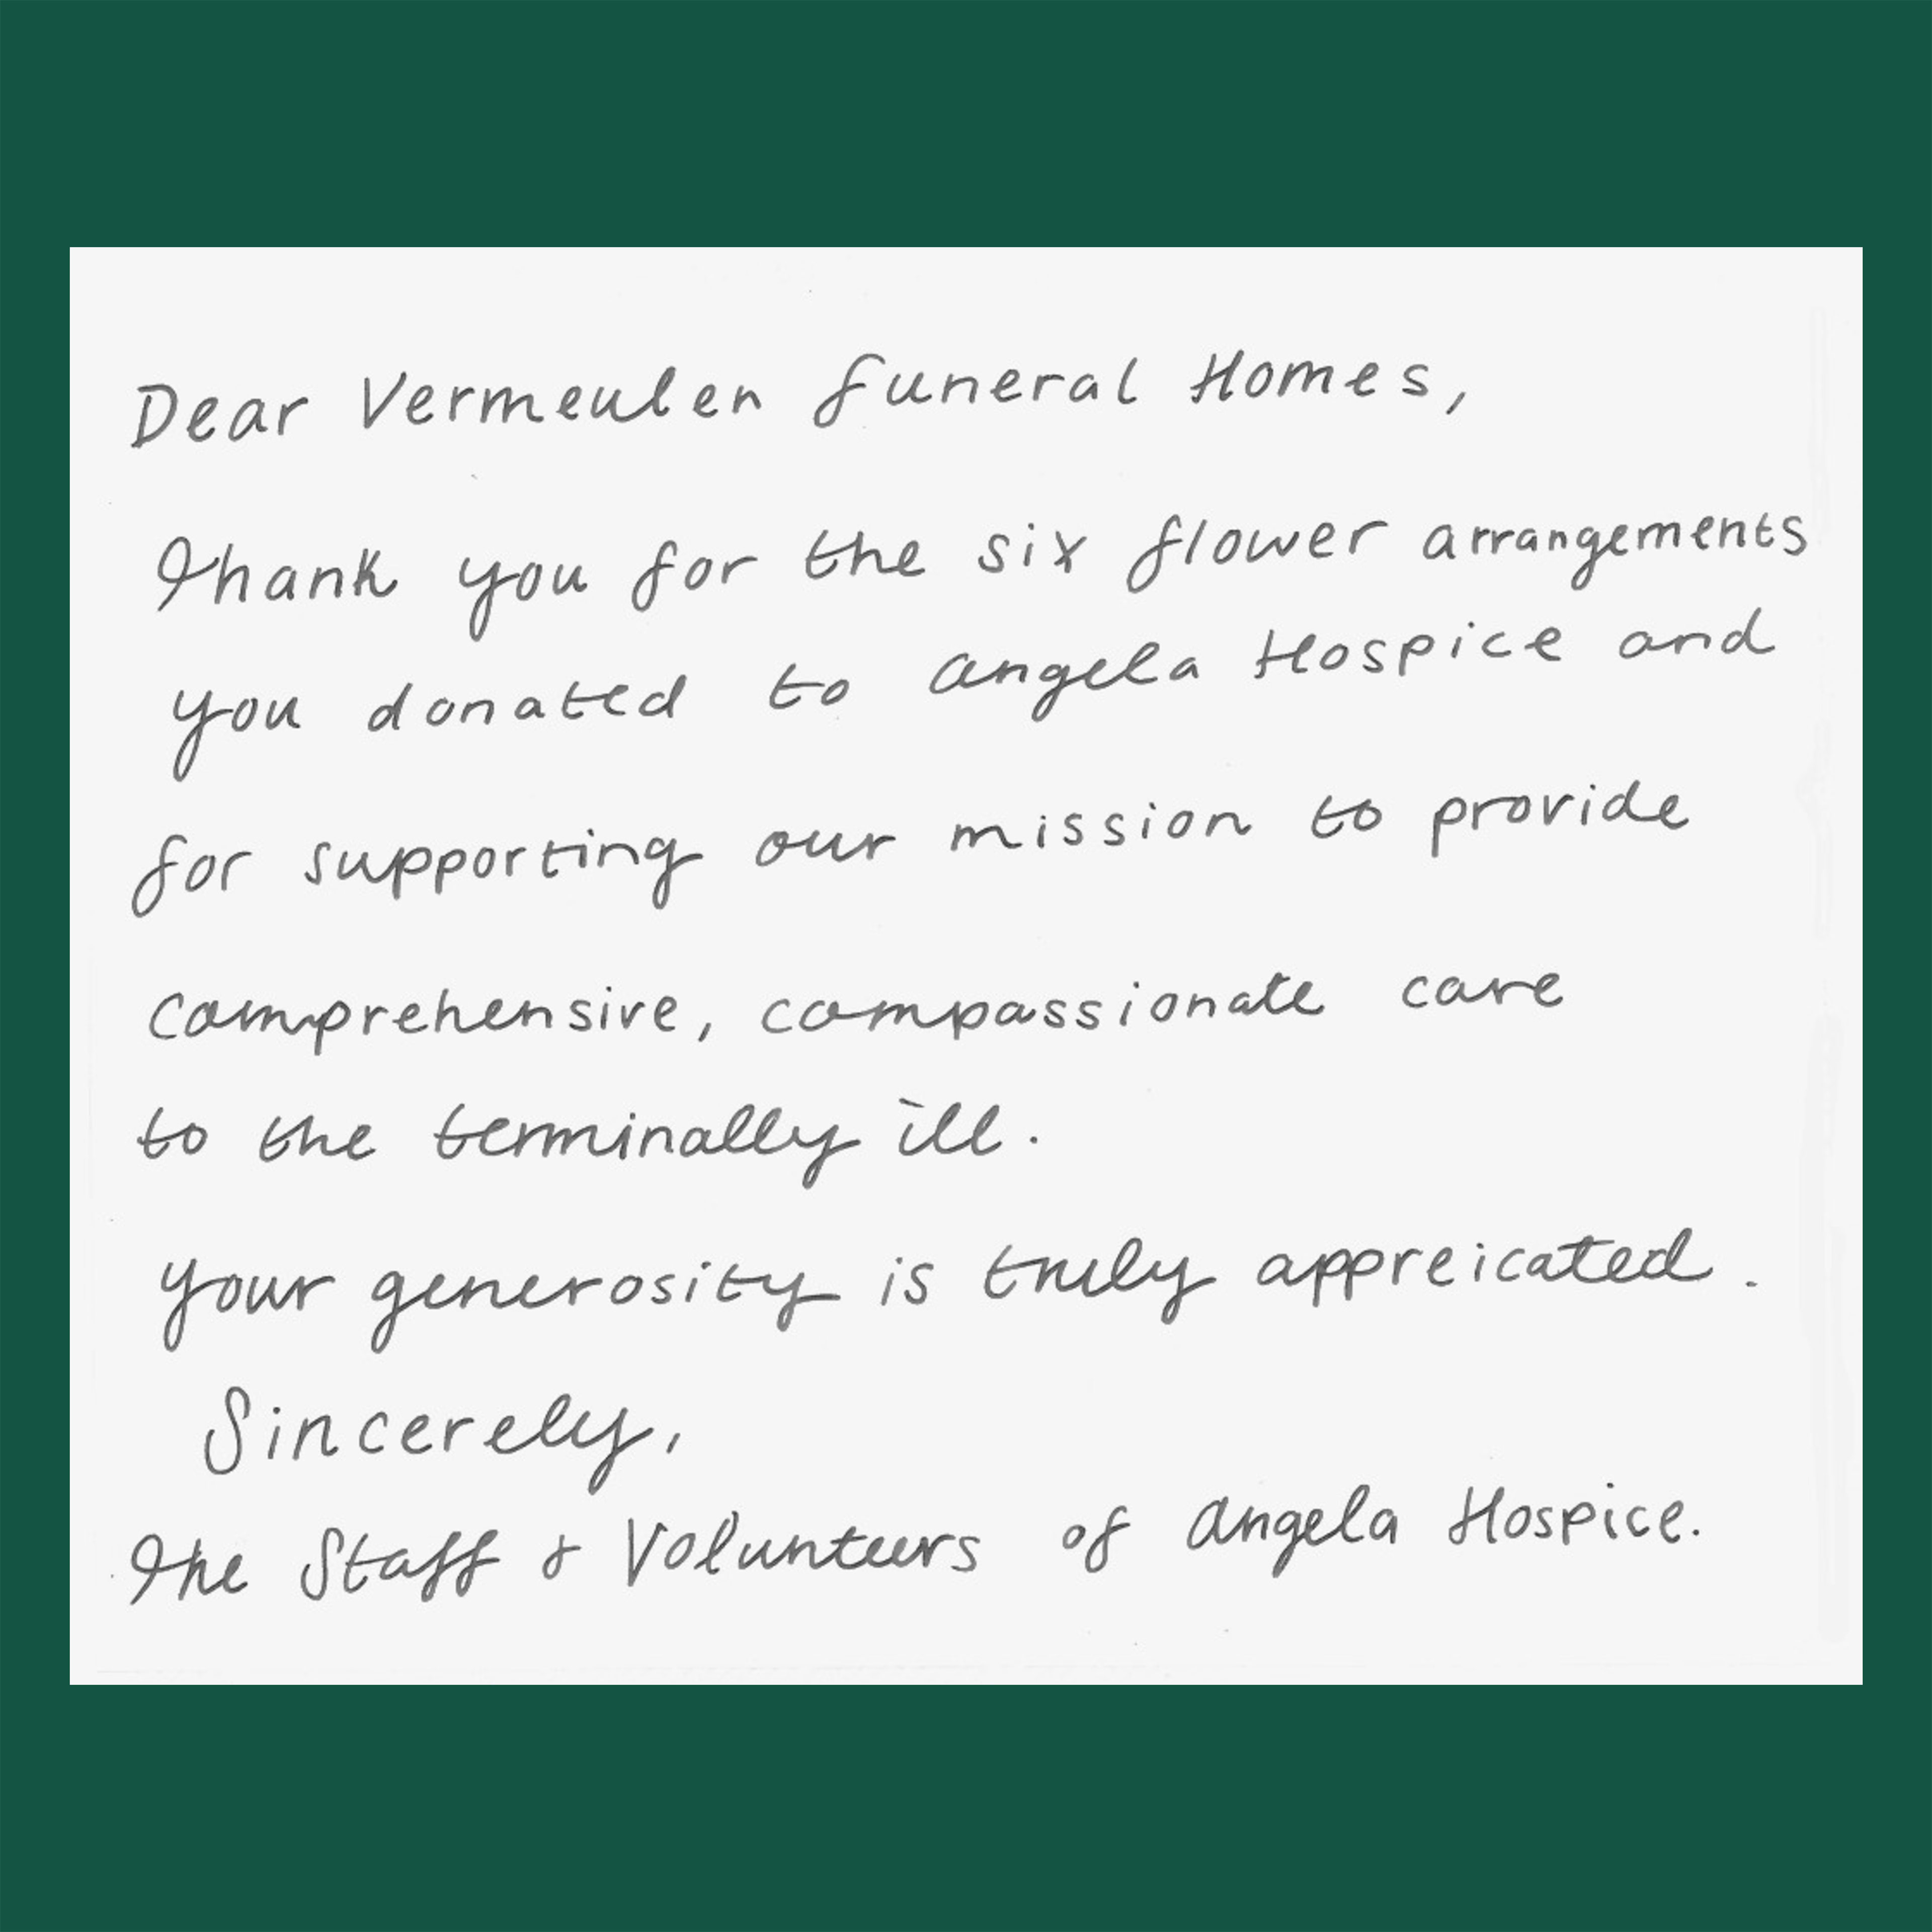 Dear Vermeulen Funeral Homes,
Thank you for the six flower arrangements
you donated to Angela Hospice and
for supporting our mission to provide
comprehensive, compassionate care
to the terminally ill.
Your generosity is truly appreicated.
Sincerely,
The Staff & Volunteers of Angela Hospice.